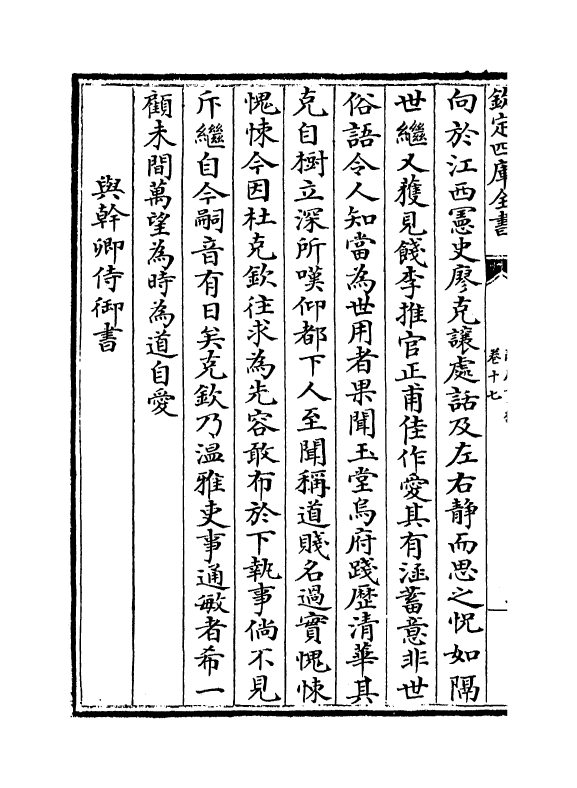 欽定四庫全書
卷十七
向於江西憲史廖克讓處話及左右靜而思之怳如隔
世繼又獲見餞李推官正甫佳作愛其有涵蓄意非世
俗語令人知當為世用者果聞玉堂烏府踐歴清華其
克自樹立深所嘆仰都下人至聞稱道賤名過實愧悚
愧悚今因杜克欽往求為先容敢布於下執事倘不見
斥繼自今嗣音有日矣克欽乃温雅吏事通敏者希一
顧未間萬望為時為道自愛
與幹卿侍御書